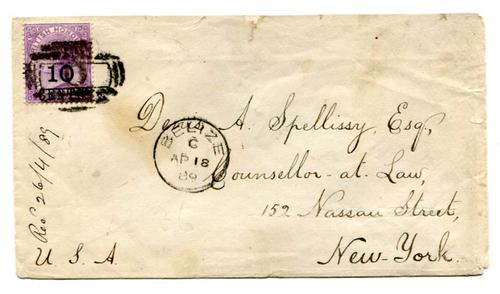 BRITISH HONDURAS
10
CENTS
BELIZE
C
AP 18
89
Denis A. Spellissy, Esq,
Counsellor-at-Law,
152 Nassau Street,
New-York.
U. S. A.
Recd 26/4/89